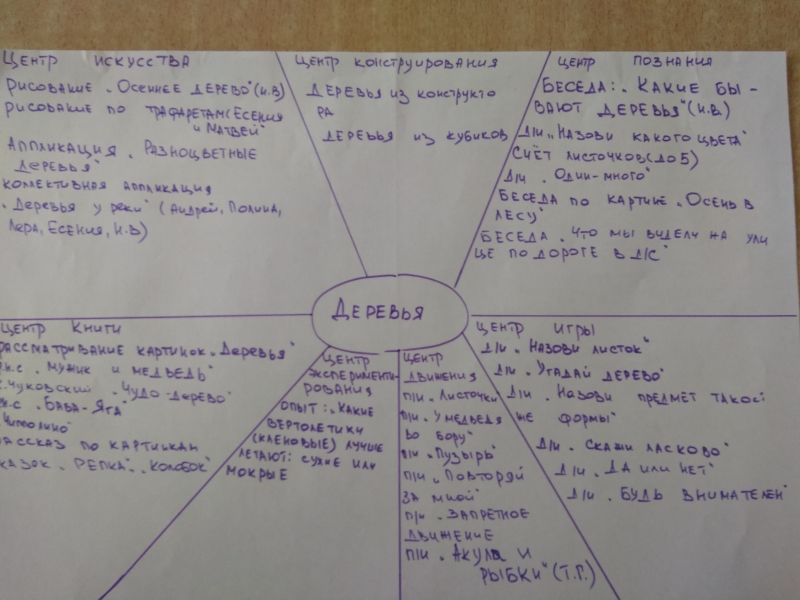 Центр искусства
Рисование „Осеннее дерево“ (И.В)
Рисование по трафаретам (Есения
и Матвей“
Аппликация „Разноцветные
деревья“
Коллективная аппликация
„Деревья у реки“ (Андрей, Полина,
Лера, Есения, И.В)
Центр конструирования
Деревья из конструкто
ра
Деревья из кубиков
Центр познания
Беседа: „Какие бы-
вают деревья“ (И.В.)
Д/и „Назови какого цвета“
Счёт листочков (до 5)
Д/и „Один-много“
Беседа по картине „Осень в
лесу“
Беседа „Что мы видели на ули
це по дороге в д/с“
Деревья
Центр книги
Рассматривание картинок „Деревья“
н.с „Мужик и медведь“
Чуковский „Чудо-дерево“
с „Баба-Яга“
Чиполино“
рассказ по картинкам
казок „Репка“, „Колобок“
Центр
эксперименти-
рования
Опыт: „Какие
вертолетики
(кленовые) лучше
летают: сухие или
мокрые
Центр
движения
П/и „Листочки
П/и „У медведя
во бору“
П/и „Пузырь“
П/и „Повторяй
за мной“
П/и „Запретное
движение
П/и „Акула и
рыбки“ (Т.Г.)
Центр игры
Д/и „Назови листок“
Д/и „Угадай дерево“
Д/и „Назови предмет такой
же формы“
Д/и „Скажи ласково“
Д/и „Да или нет“
Д/и „Будь внимателен“